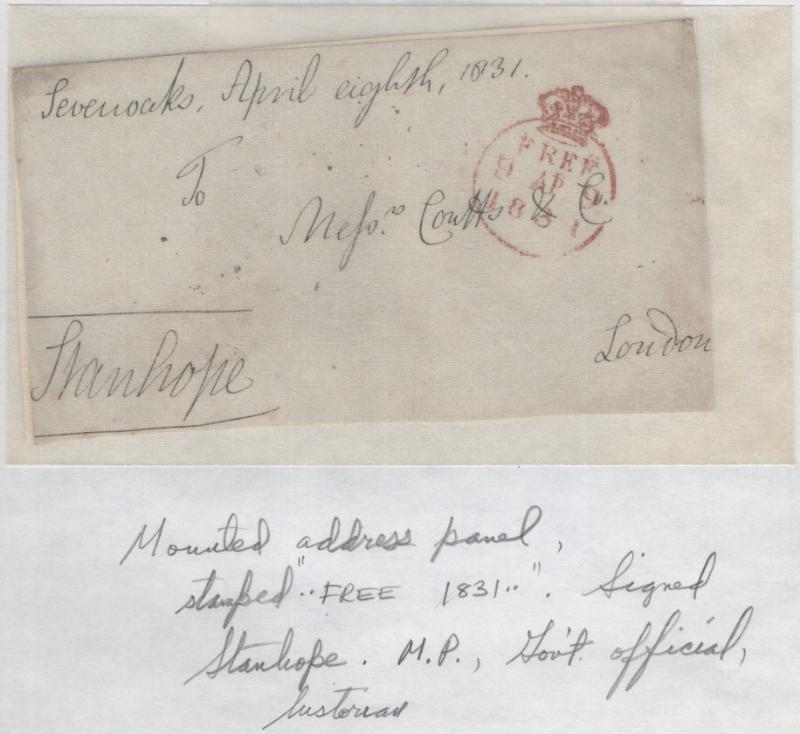 Sevenoaks, April eighth, 1831.
FREE
9 AP 9
1831
To
Messrs Coutts & Co.
London
Stanhope
Mounted address panel,
stamped "..FREE 1831..". Signed
Stanhope. M.P., Gov't. official,
historian